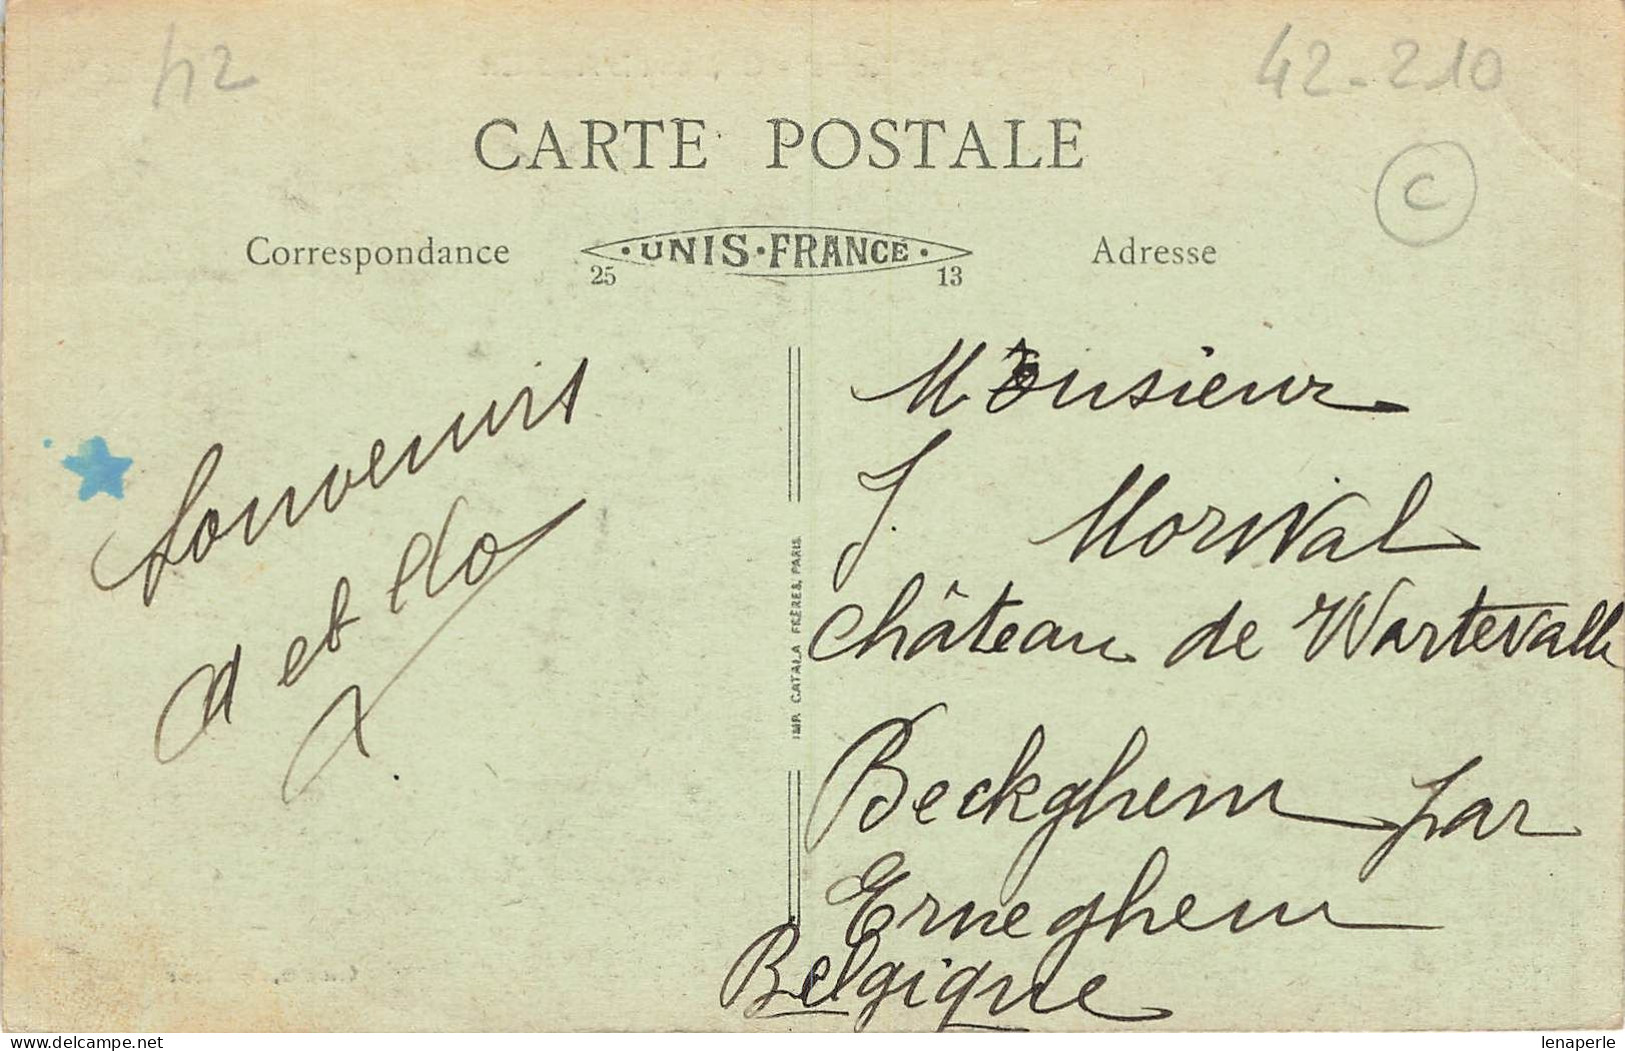 42
42-210
CARTE POSTALE
C
Correspondance
·UNIS·FRANCE·
25 13
Adresse
Souvenirs
et
Monsieur
J. Morival
Château de Wartevalle
Beckghem par
Erneghem
Belgique
IMP. CATALA FRÈRES, PARIS
lenaperle